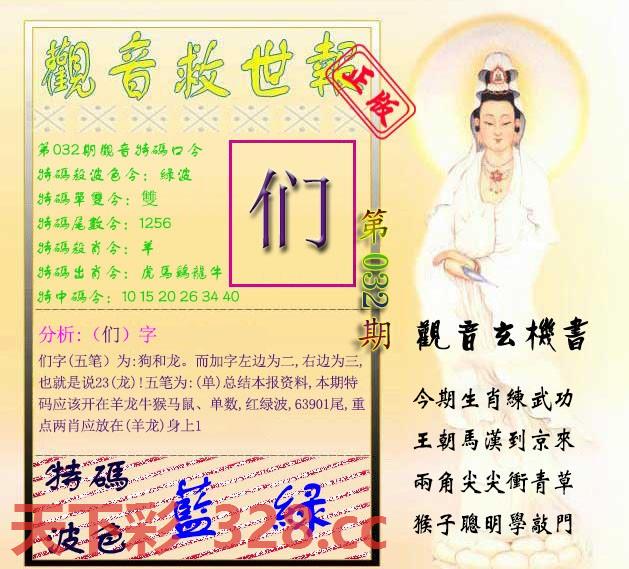 觀音救世報
正版
第032期觀音特碼口令
特碼殺波色令：綠波
特碼單雙令：雙
特碼尾數令：1256
特碼殺肖令：羊
特碼出肖令：虎馬鷄龍牛
特中碼令：10 15 20 26 34 40
们
第032期
分析:（们）字
们字(五笔）为:狗和龙。而加字左边为二,右边为三,
也就是说23(龙)!五笔为:(单)总结本报资料,本期特
码应该开在羊龙牛猴马鼠、单数,红绿波,63901尾,重
点两肖应放在(羊龙)身上1
特碼
波色
藍 綠
天下彩 328.cc
觀音玄機書
今期生肖練武功
王朝馬漢到京來
兩角尖尖衝青草
猴子聰明學敲門